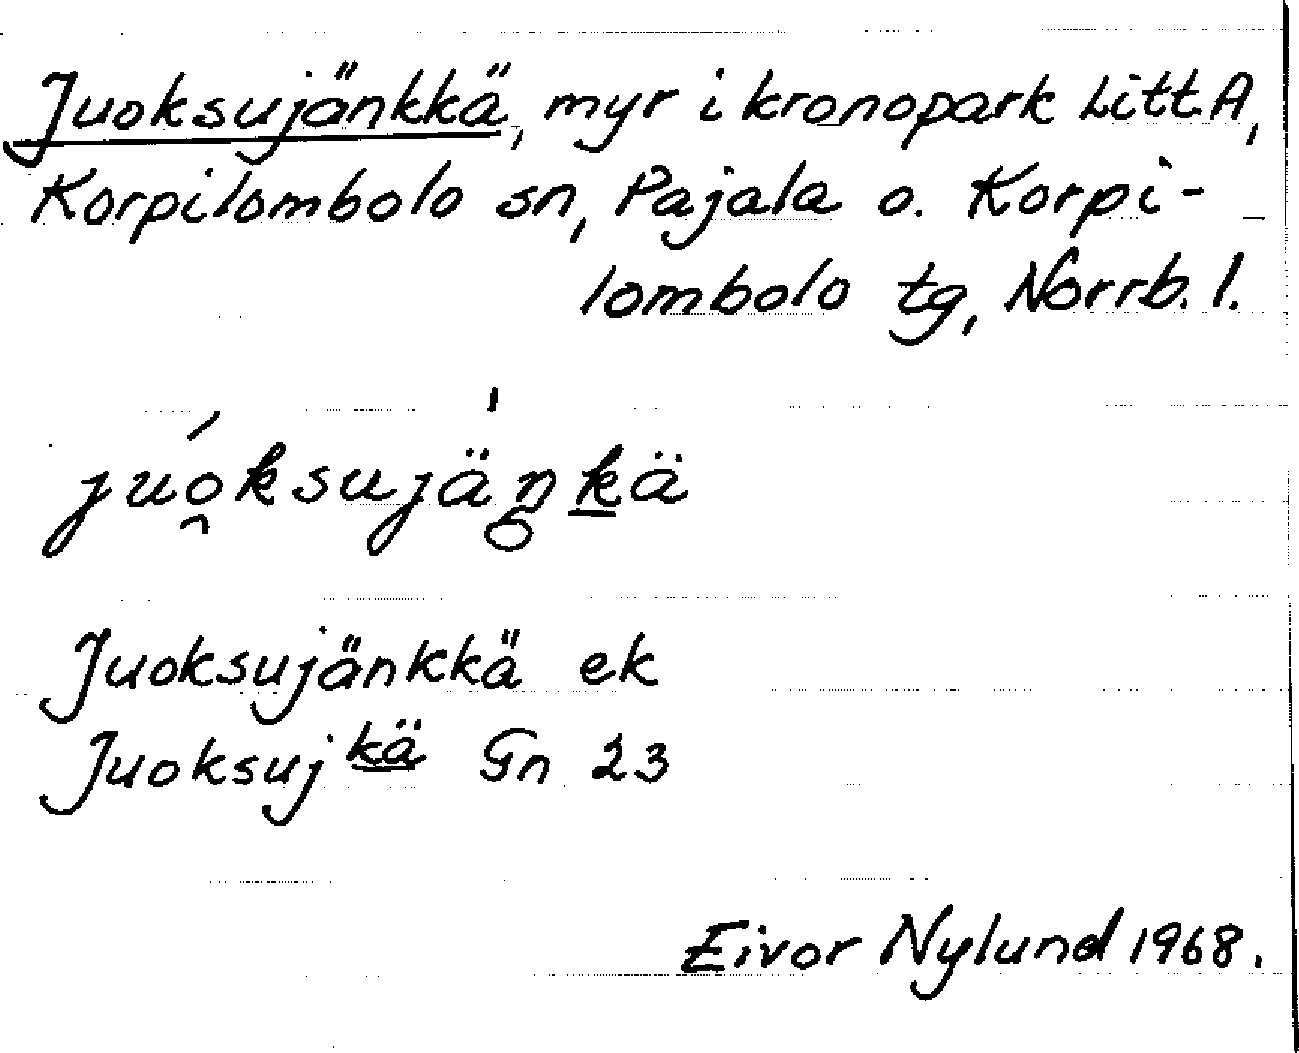 Juoksujänkkä, myr i kronopark Litt.A,
Korpilombolo sn, Pajala o. Korpi-
lombolo tg, Norrb. l.
juo̯ksujäŋk̲ä
Juoksujänkkä ek
Juoksujkä Gn 23
Eivor Nylund 1968.